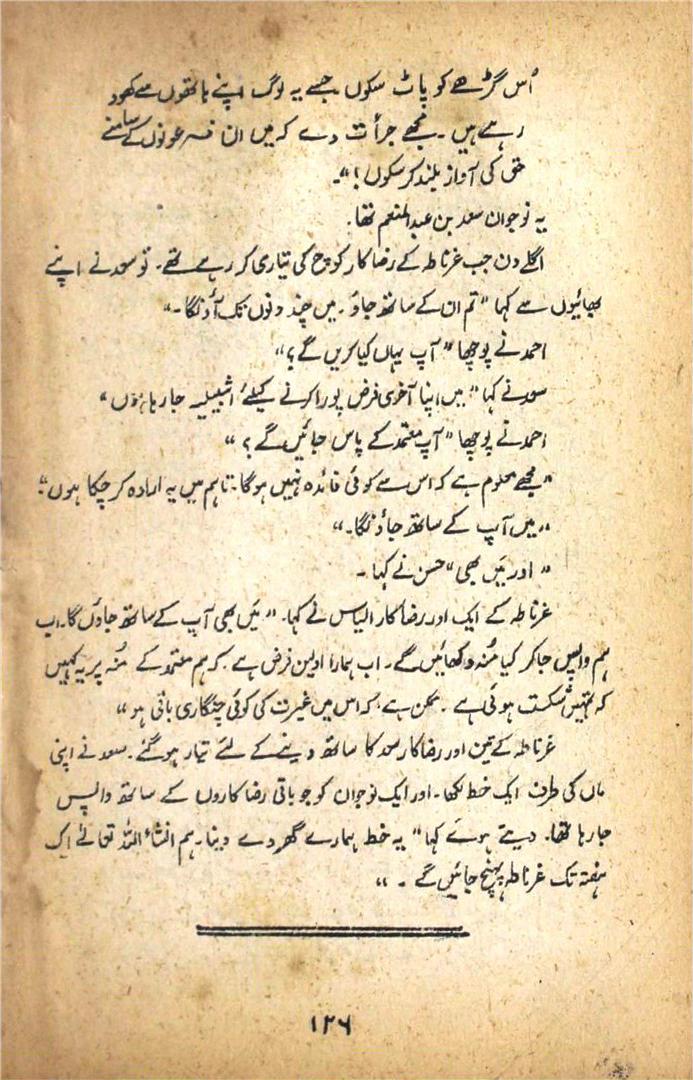 اُس گڑھے کو پاٹ سکوں جسے یہ لوگ اپنے ہاتھوں سے کھود
رہے ہیں ۔ مجھے جرأت دے کہ میں ان فرعونوں کے سامنے
حق کی آواز بلند کر سکوں !“۔
یہ نوجوان سعد بن عبدالمنعم تھا۔
اگلے دن جب غرناطہ کے رضاکار کوچ کی تیاری کر رہے تھے۔ تو سعد نے اپنے
بھائیوں سے کہا ”تم ان کے ساتھ جاؤ ۔ میں چند دنوں تک آؤنگا۔“
احمد نے پوچھا ”آپ یہاں کیا کریں گے؟“
سعد نے کہا ”میں اپنا آخری فرض پورا کرنے کیلئے اشبیلیہ جا رہا ہوں“
احمد نے پوچھا ”آپ معتمد کے پاس جائیں گے؟“
”مجھے معلوم ہے کہ اس سے کوئی فائدہ نہیں ہوگا۔ تاہم میں یہ ارادہ کر چکا ہوں“۔
”میں آپ کے ساتھ جاؤنگا۔“
”اور میں بھی“ حسن نے کہا ۔
غرناطہ کے ایک اور رضاکار الیاس نے کہا۔ ”میں بھی آپ کے ساتھ جاؤں گا۔ اب
ہم واپس جا کر کیا مُنہ دکھائیں گے۔ اب ہمارا اولین فرض ہے۔ کہ ہم معتمد کے مُنہ پر یہ کہیں
کہ تمہیں شکست ہوئی ہے۔ ممکن ہے، کہ اس میں غیرت کی کوئی چنگاری باقی ہو“
غرناطہ کے تین اور رضاکار سعد کا ساتھ دینے کے لئے تیار ہو گئے۔ سعد نے اپنی
ماں کی طرف ایک خط لکھا۔ اور ایک نوجوان کو جو باقی رضاکاروں کے ساتھ واپس
جا رہا تھا۔ دیتے ہوئے کہا ”یہ خط ہمارے گھر دے دینا۔ ہم انشاء اللہ تعالےٰ اک
ہفتہ تک غرناطہ پہنچ جائیں گے ۔“
۱۲۶